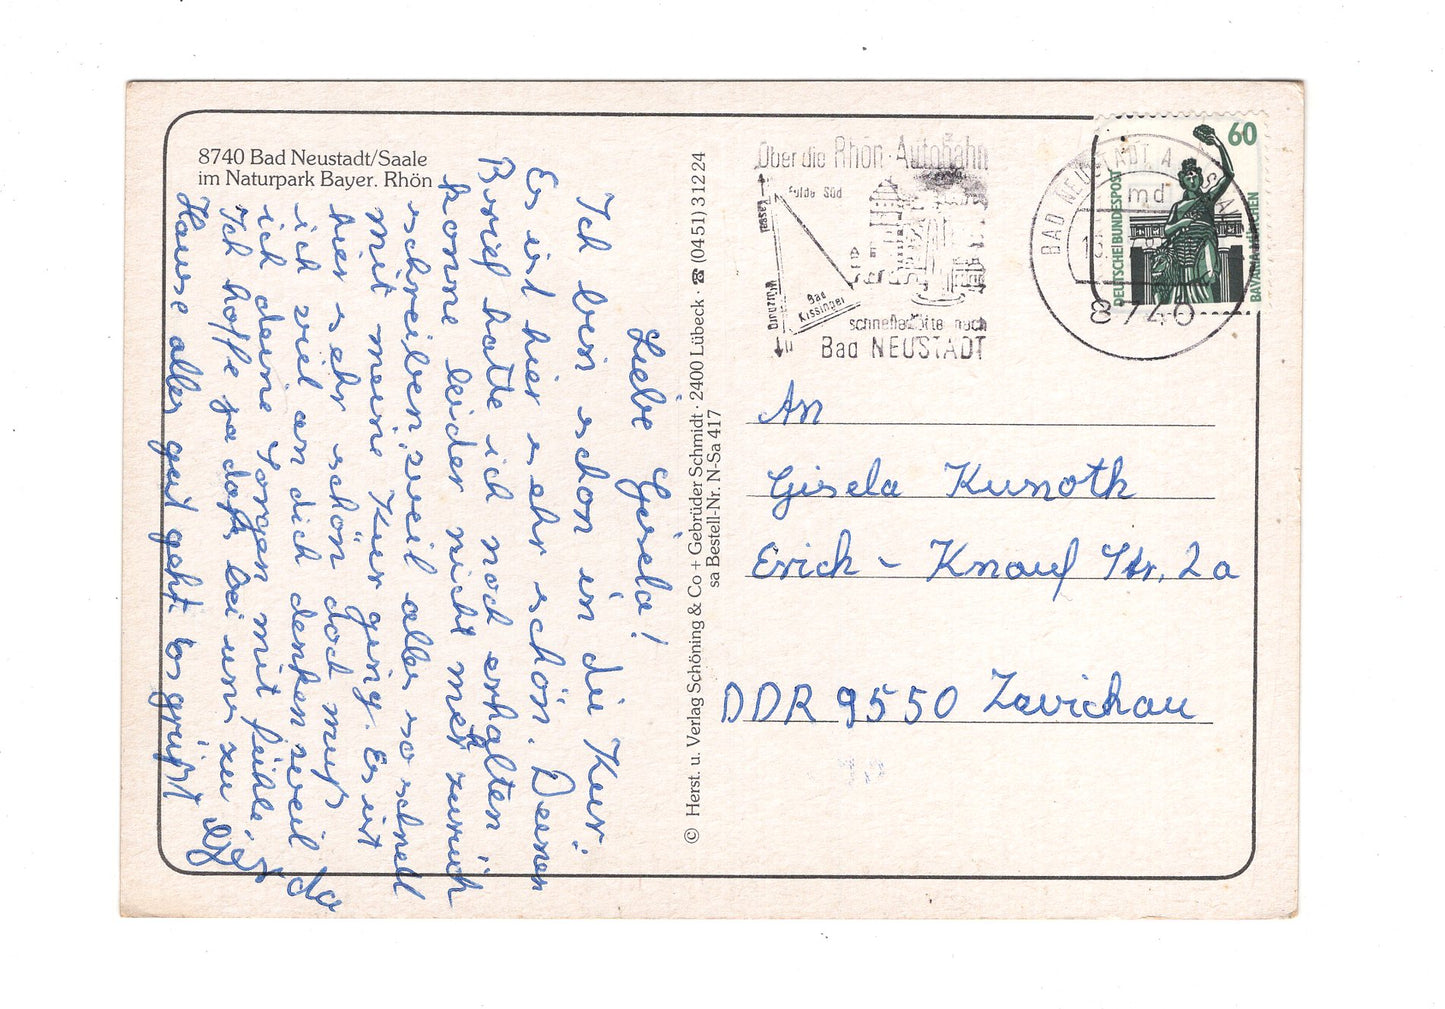 8740 Bad Neustadt/Saale
im Naturpark Bayer. Rhön
Liebe Gisela!
Ich bin schon in die Kur.
Es ist hier sehr schön. Deinen
Brief hatte ich noch erhalten
konne leider nicht mehr zurück
schreiben, weil alles so schnell
mit meine Kur ging. Es ist
hier sehr schön doch muß
ich viel an dich denken weil da
ich deine Sorgen mit fühle,
Ich hoffe ja daß bei uns zu
Hause alles gut geht. Es grüßt
© Herst. u. Verlag Schöning & Co + Gebrüder Schmidt · 2400 Lübeck · ☎ (0451) 31224
sa Bestell-Nr. N-Sa 417
Über die Rhön-Autobahn
Fulda Süd
Kassel
Würzburg
Bad
Kissingen
schnellste nach
Bad NEUSTADT
BAD NEUSTADT A D SAALE
md
8740
60
DEUTSCHE BUNDESPOST
BAVARIA MÜNCHEN
An
Gisela Kunoth
Erich - Knauf Str. 2a
DDR 9550 Zwichau